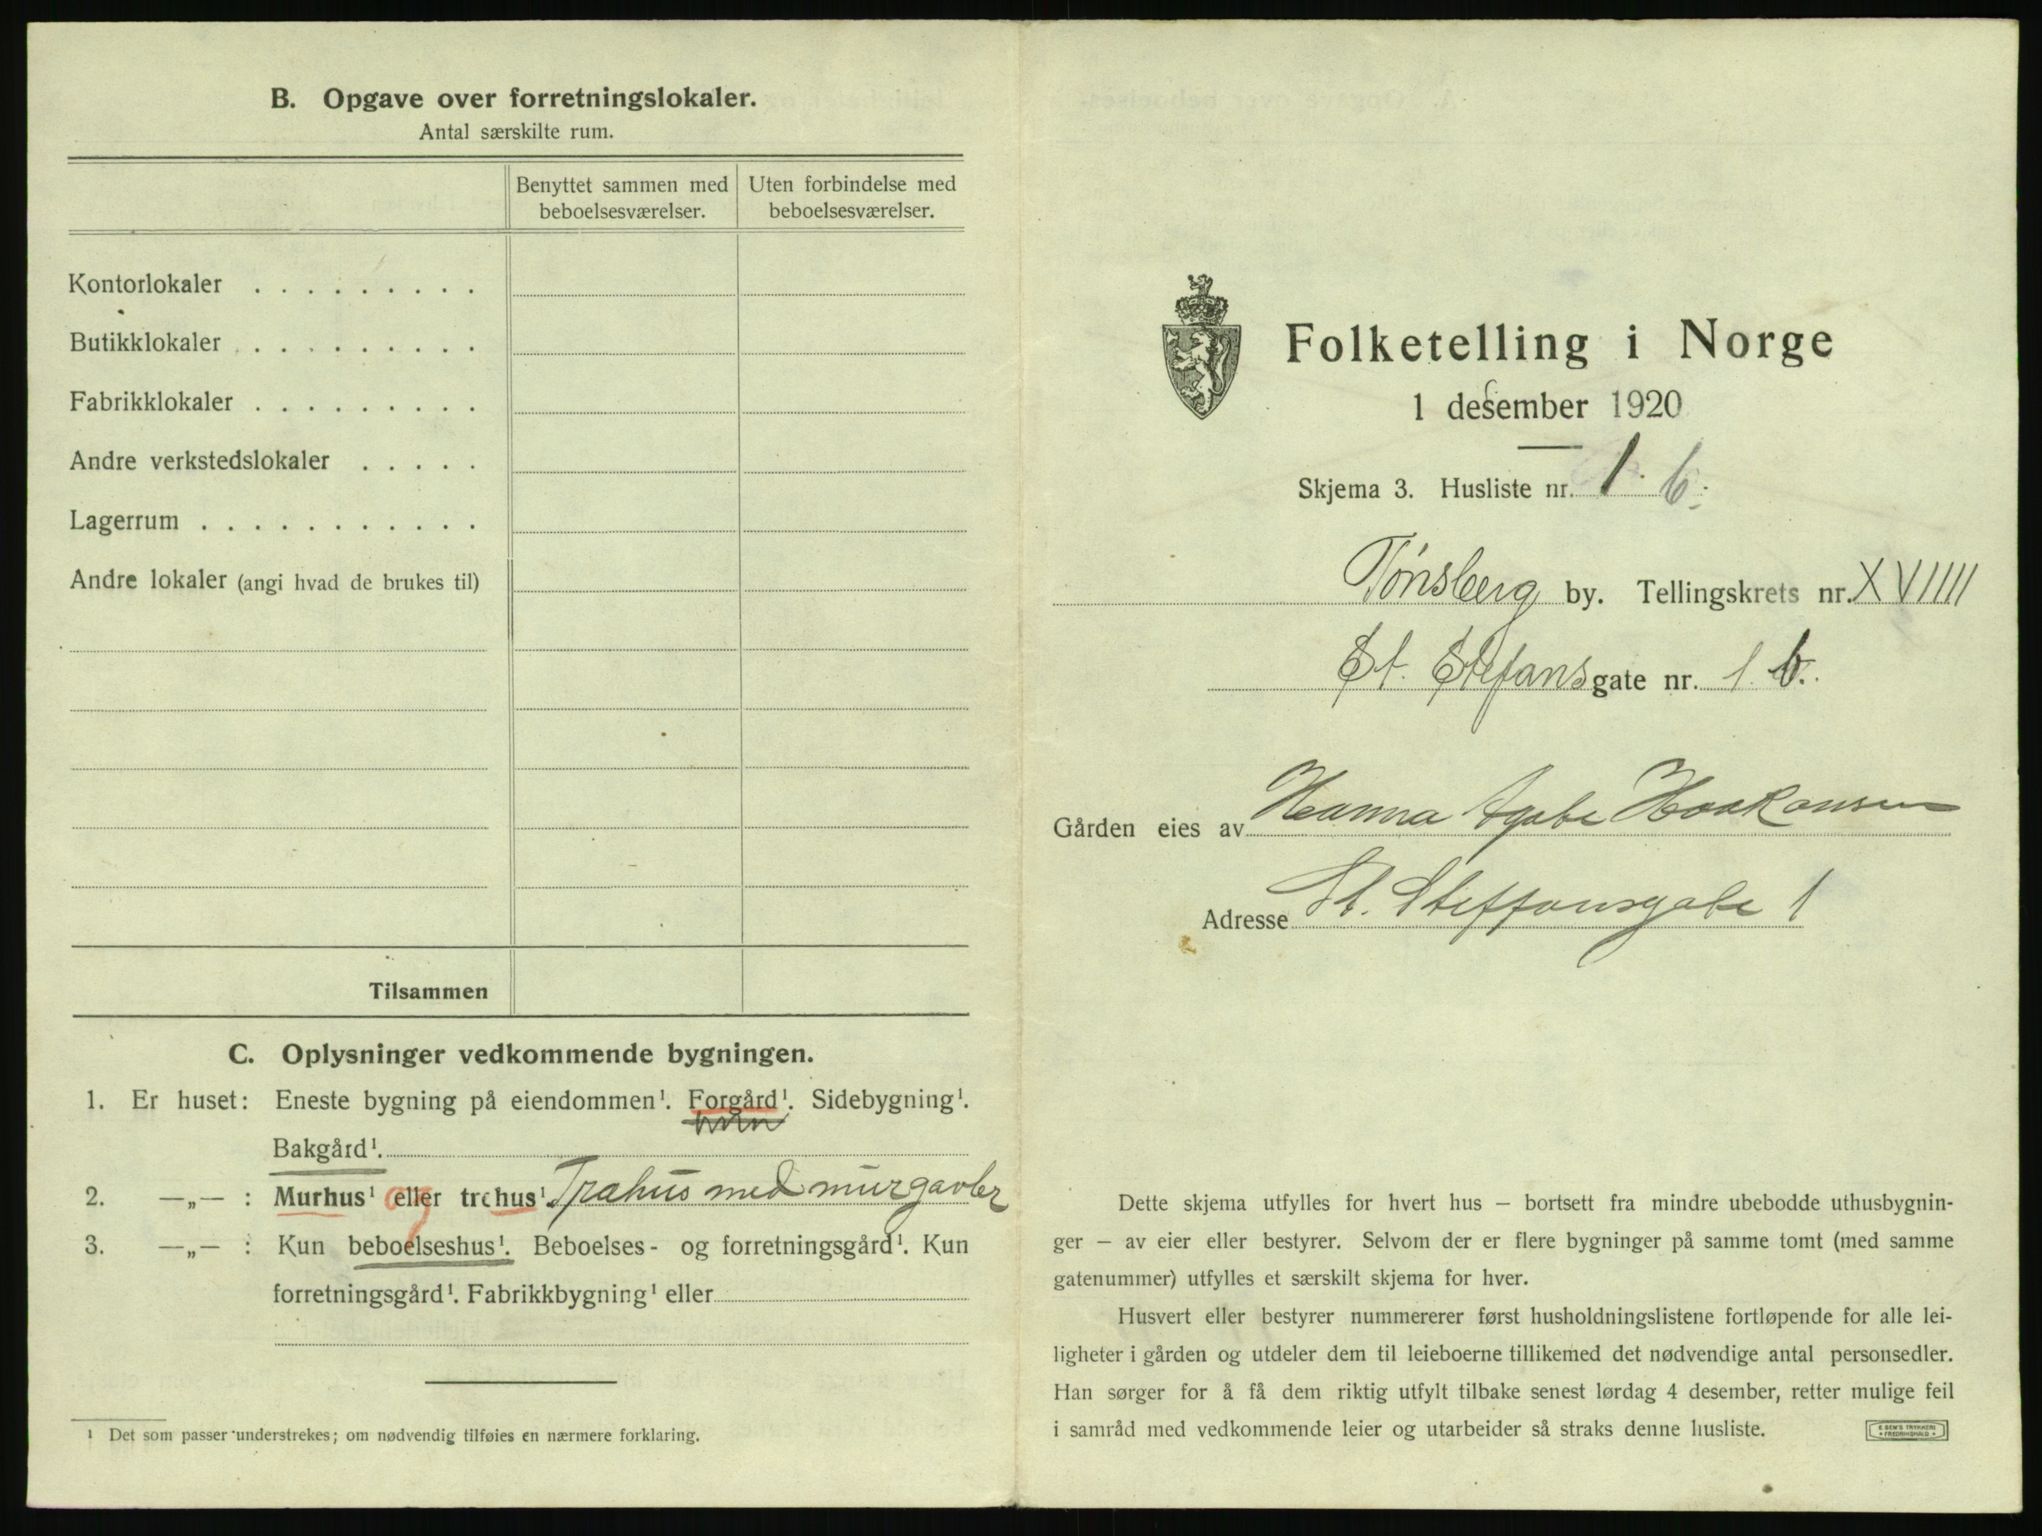 B. Opgave over forretningslokaler.
Antal særskilte rum.
Benyttet sammen med beboelsesværelser.
Uten forbindelse med beboelsesværelser.
Kontorlokaler . . . . . . . . .
Butikklokaler . . . . . . . . .
Fabrikklokaler . . . . . . . . .
Andre verkstedslokaler . . . . .
Lagerrum . . . . . . . . . . .
Andre lokaler (angi hvad de brukes til)
Tilsammen
C. Oplysninger vedkommende bygningen.
1. Er huset: Eneste bygning på eiendommen¹. Forgård¹. Sidebygning¹.
Bakgård¹.
2. —„— : Murhus¹ eller trehus¹. Træhus med murgavler
og
3. —„— : Kun beboelseshus¹. Beboelses- og forretningsgård¹. Kun
forretningsgård¹. Fabrikkbygning¹ eller
¹ Det som passer understrekes; om nødvendig tilføies en nærmere forklaring.
Folketelling i Norge
1 desember 1920
Skjema 3. Husliste nr. 1. b.
Tønsberg by. Tellingskrets nr. XVIIII
St. Stefans gate nr. 1 b.
Gården eies av Hanna Agate Haakansen
Adresse St. Steffansgate 1
Dette skjema utfylles for hvert hus — bortsett fra mindre ubebodde uthusbygnin-
ger — av eier eller bestyrer. Selvom der er flere bygninger på samme tomt (med samme
gatenummer) utfylles et særskilt skjema for hver.
Husvert eller bestyrer nummererer først husholdningslistene fortløpende for alle lei-
ligheter i gården og utdeler dem til leieboerne tillikemed det nødvendige antal personsedler.
Han sørger for å få dem riktig utfylt tilbake senest lørdag 4 desember, retter mulige feil
i samråd med vedkommende leier og utarbeider så straks denne husliste.